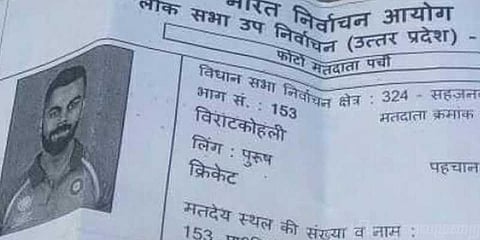 भारत निर्वाचन आयोग
लोक सभा उप निर्वाचन (उत्तर प्रदेश) -
फोटो मतदाता पर्ची
विधान सभा निर्वाचन क्षेत्र : 324 - सहजनव
भाग सं. : 153
मतदाता क्रमांक
विराटकोहली
लिंग : पुरूष
पहचान
क्रिकेट
मतदेय स्थल की संख्या व नाम :
153